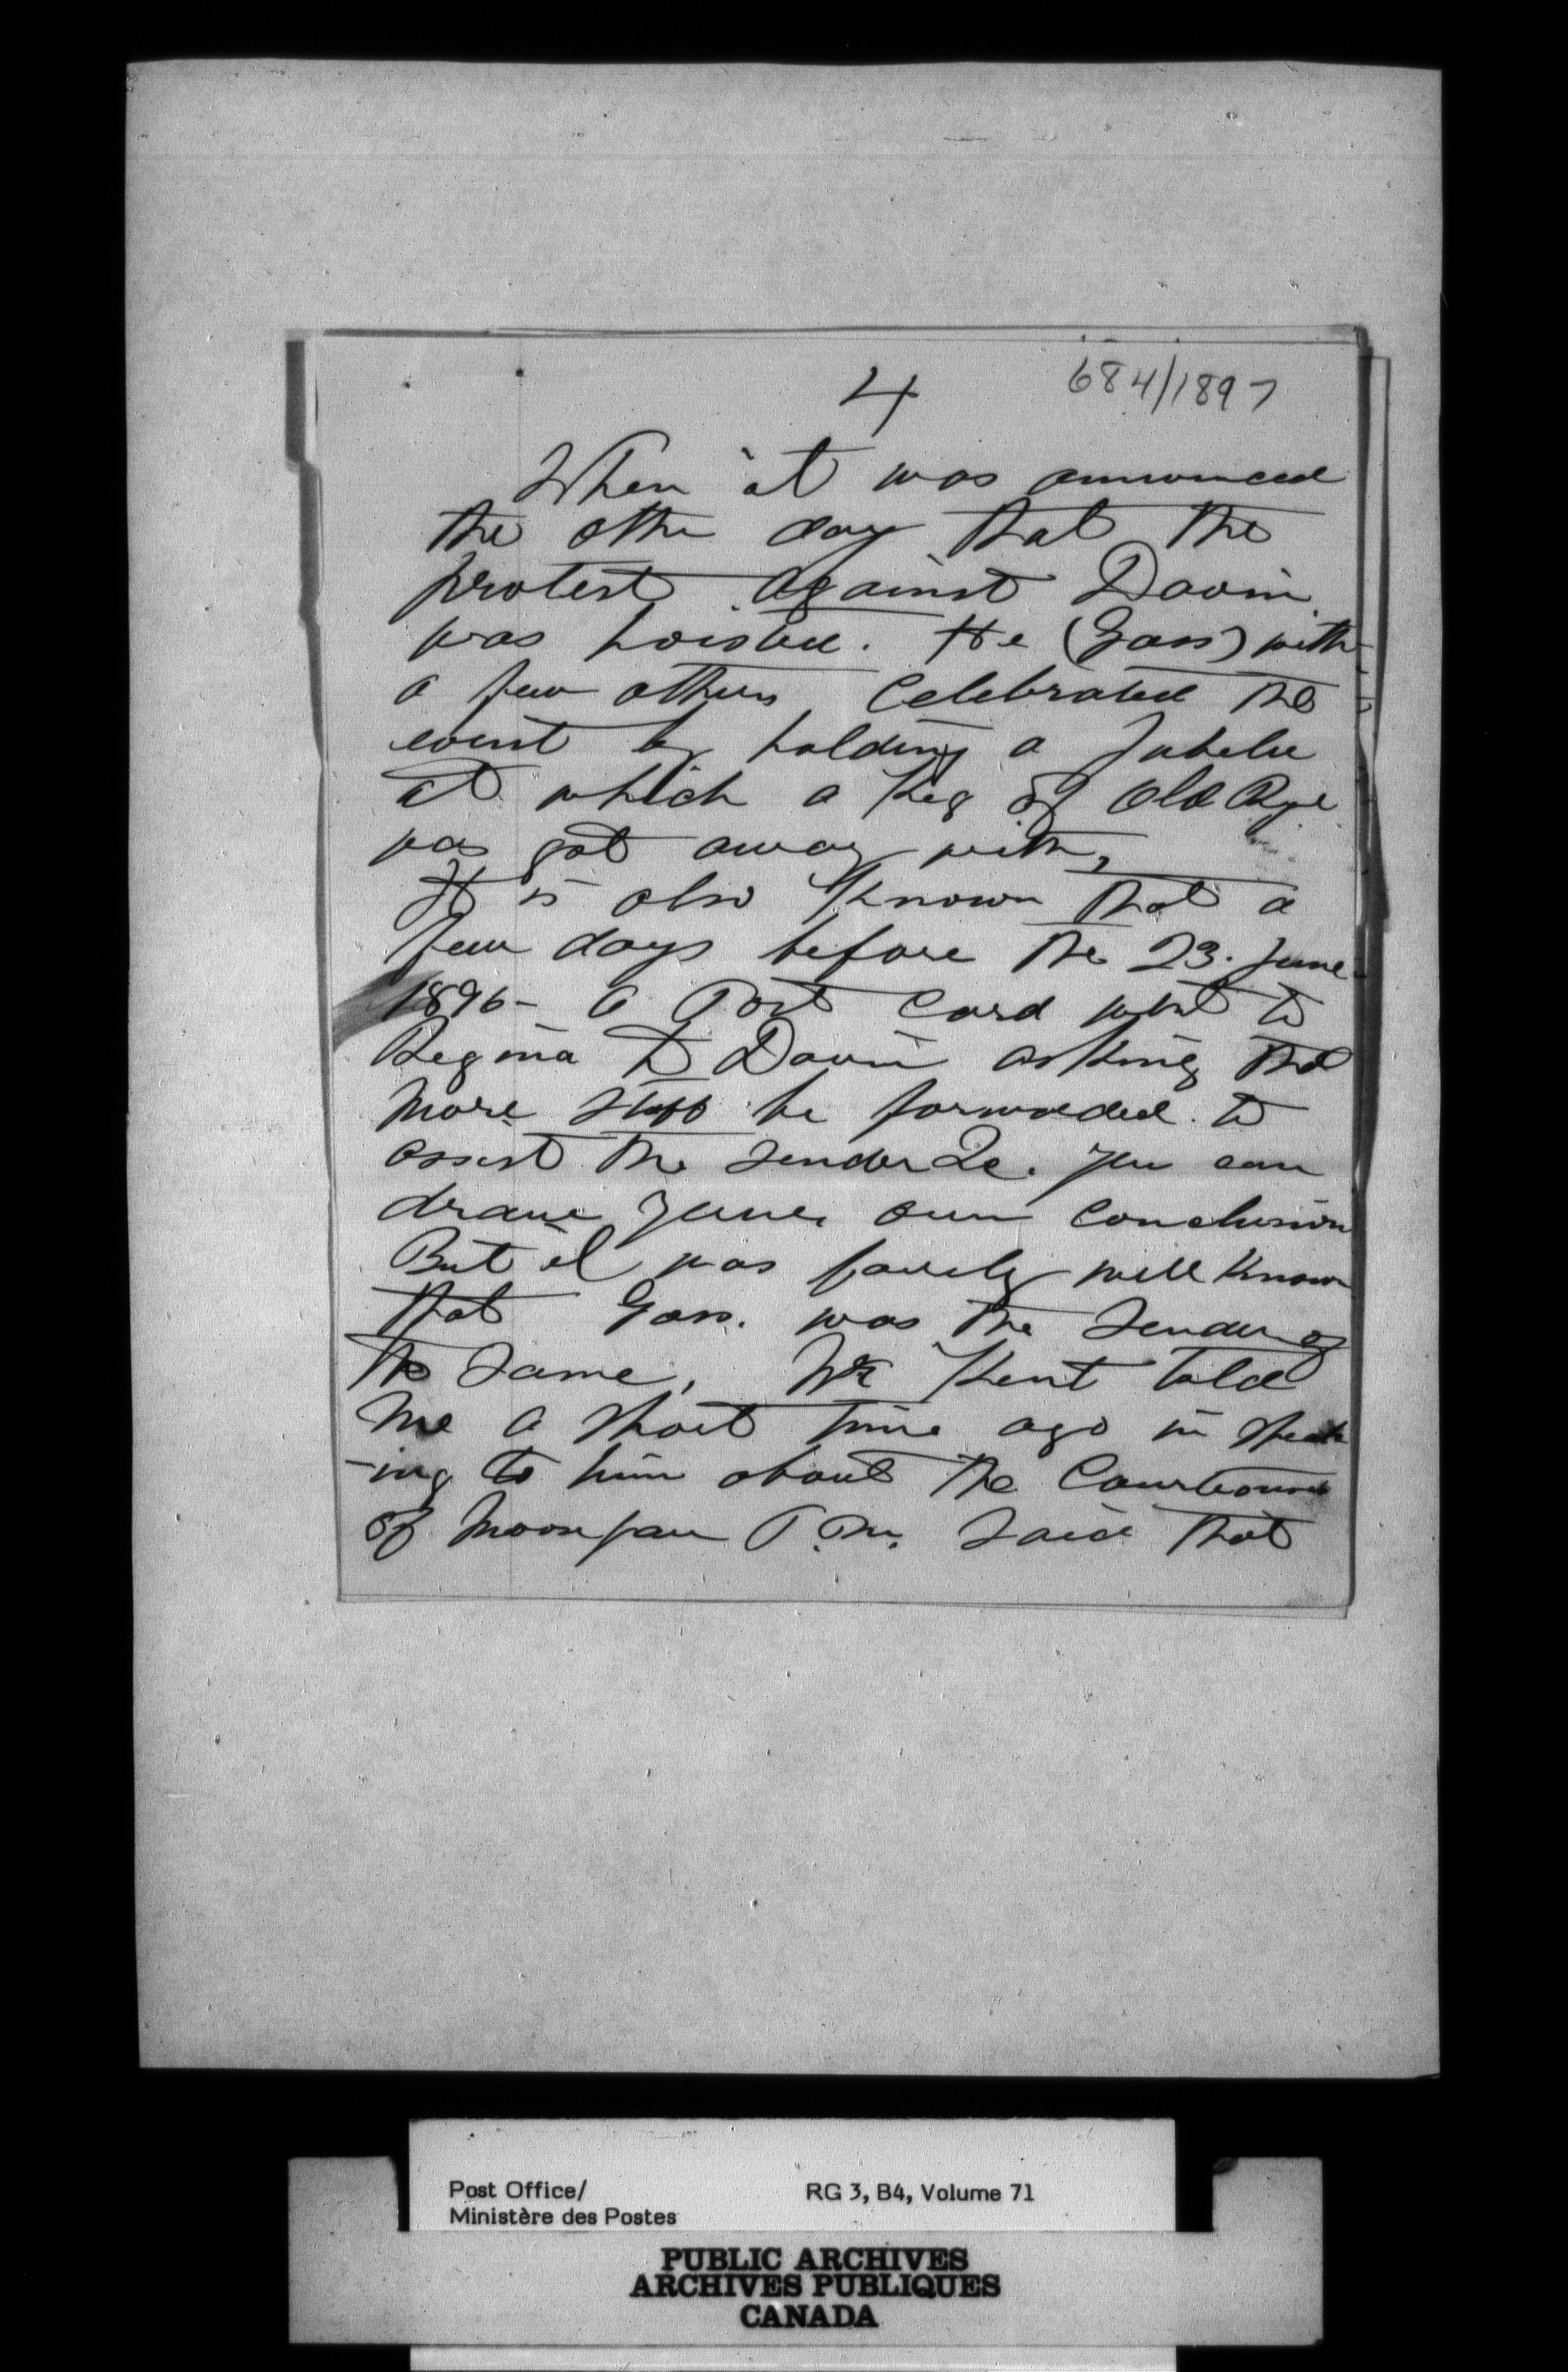 4
684/1897
When it was announced
the other day that the
protest against Davin
was hoisted. He (Gass) with
a few others celebrated the
event by holding a Jubelie
at which a Keg of Old Rye
was got away with,
It is also Known that a
few days before the 23. June
1896 - a Post Card went to
Regina to Davin asking that
more stuff be forwarded to
assist the sender &c. you can
drawe your own conclusion
But it was fairly well Known
that Gass. was the sender of
the same, Mr Kent told
me a short time ago in speak
-ing to him about the
of Moosejaw P.M. said that
Post Office/
Ministère des Postes
RG 3, B4, Volume 71
PUBLIC ARCHIVES
ARCHIVES PUBLIQUES
CANADA